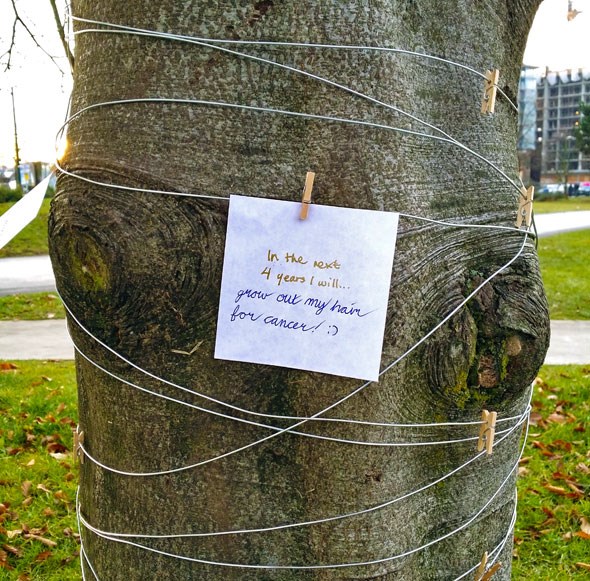 In the next
4 years I will...
grow out my hair
for cancer! :)